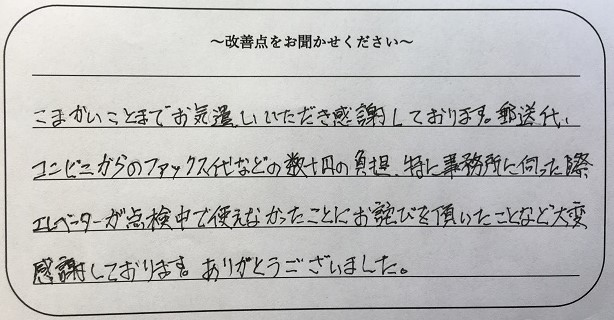 ～改善点をお聞かせください～
こまかいことまでお気遣いいただき感謝しております。郵送代、
コンビニからのファックス代などの数十円の負担、特に事務所に伺った際
エレベーターが点検中で使えなかったことにお詫びを頂いたことなど大変
感謝しております。ありがとうございました。